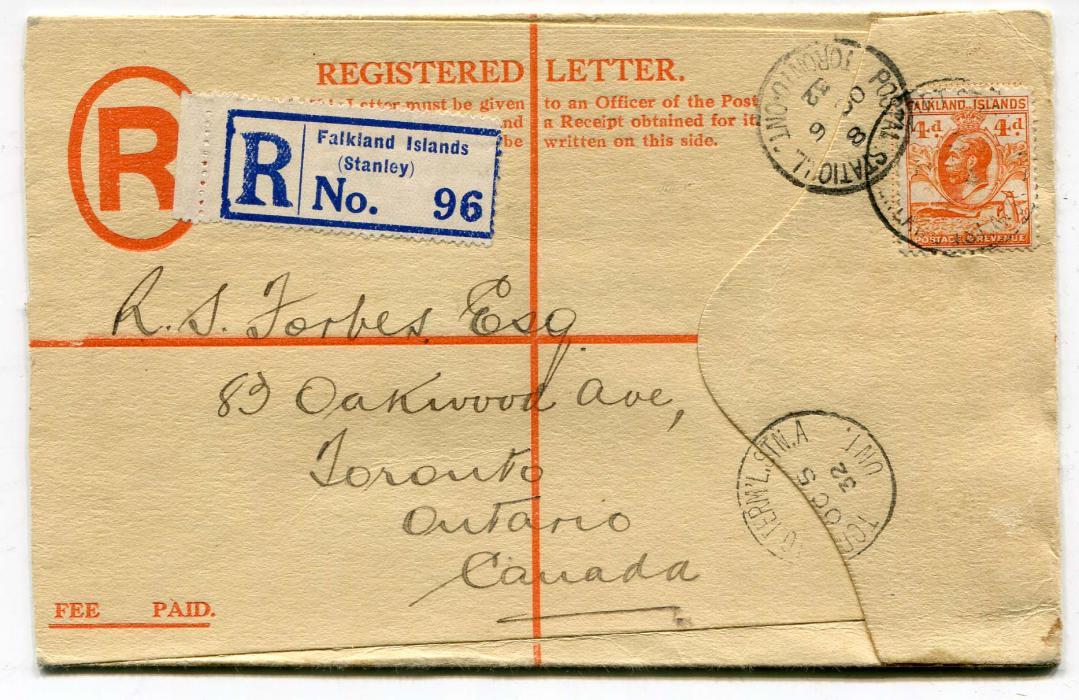 REGISTERED LETTER.
must be given to an Officer of the Post
and a Receipt obtained for it
be written on this side.
R
R
Falkland Islands
(Stanley)
No. 96
FALKLAND ISLANDS
4d 4d
POSTAGE & REVENUE
POSTAL STATION
TORONTO-ONT.
8
OC 6
32
R. S. Forbes, Esq
83 Oakwood Ave,
Toronto
Ontario
Canada
TERM'L. STN. A
OC 5
32
ONT.
FEE PAID.